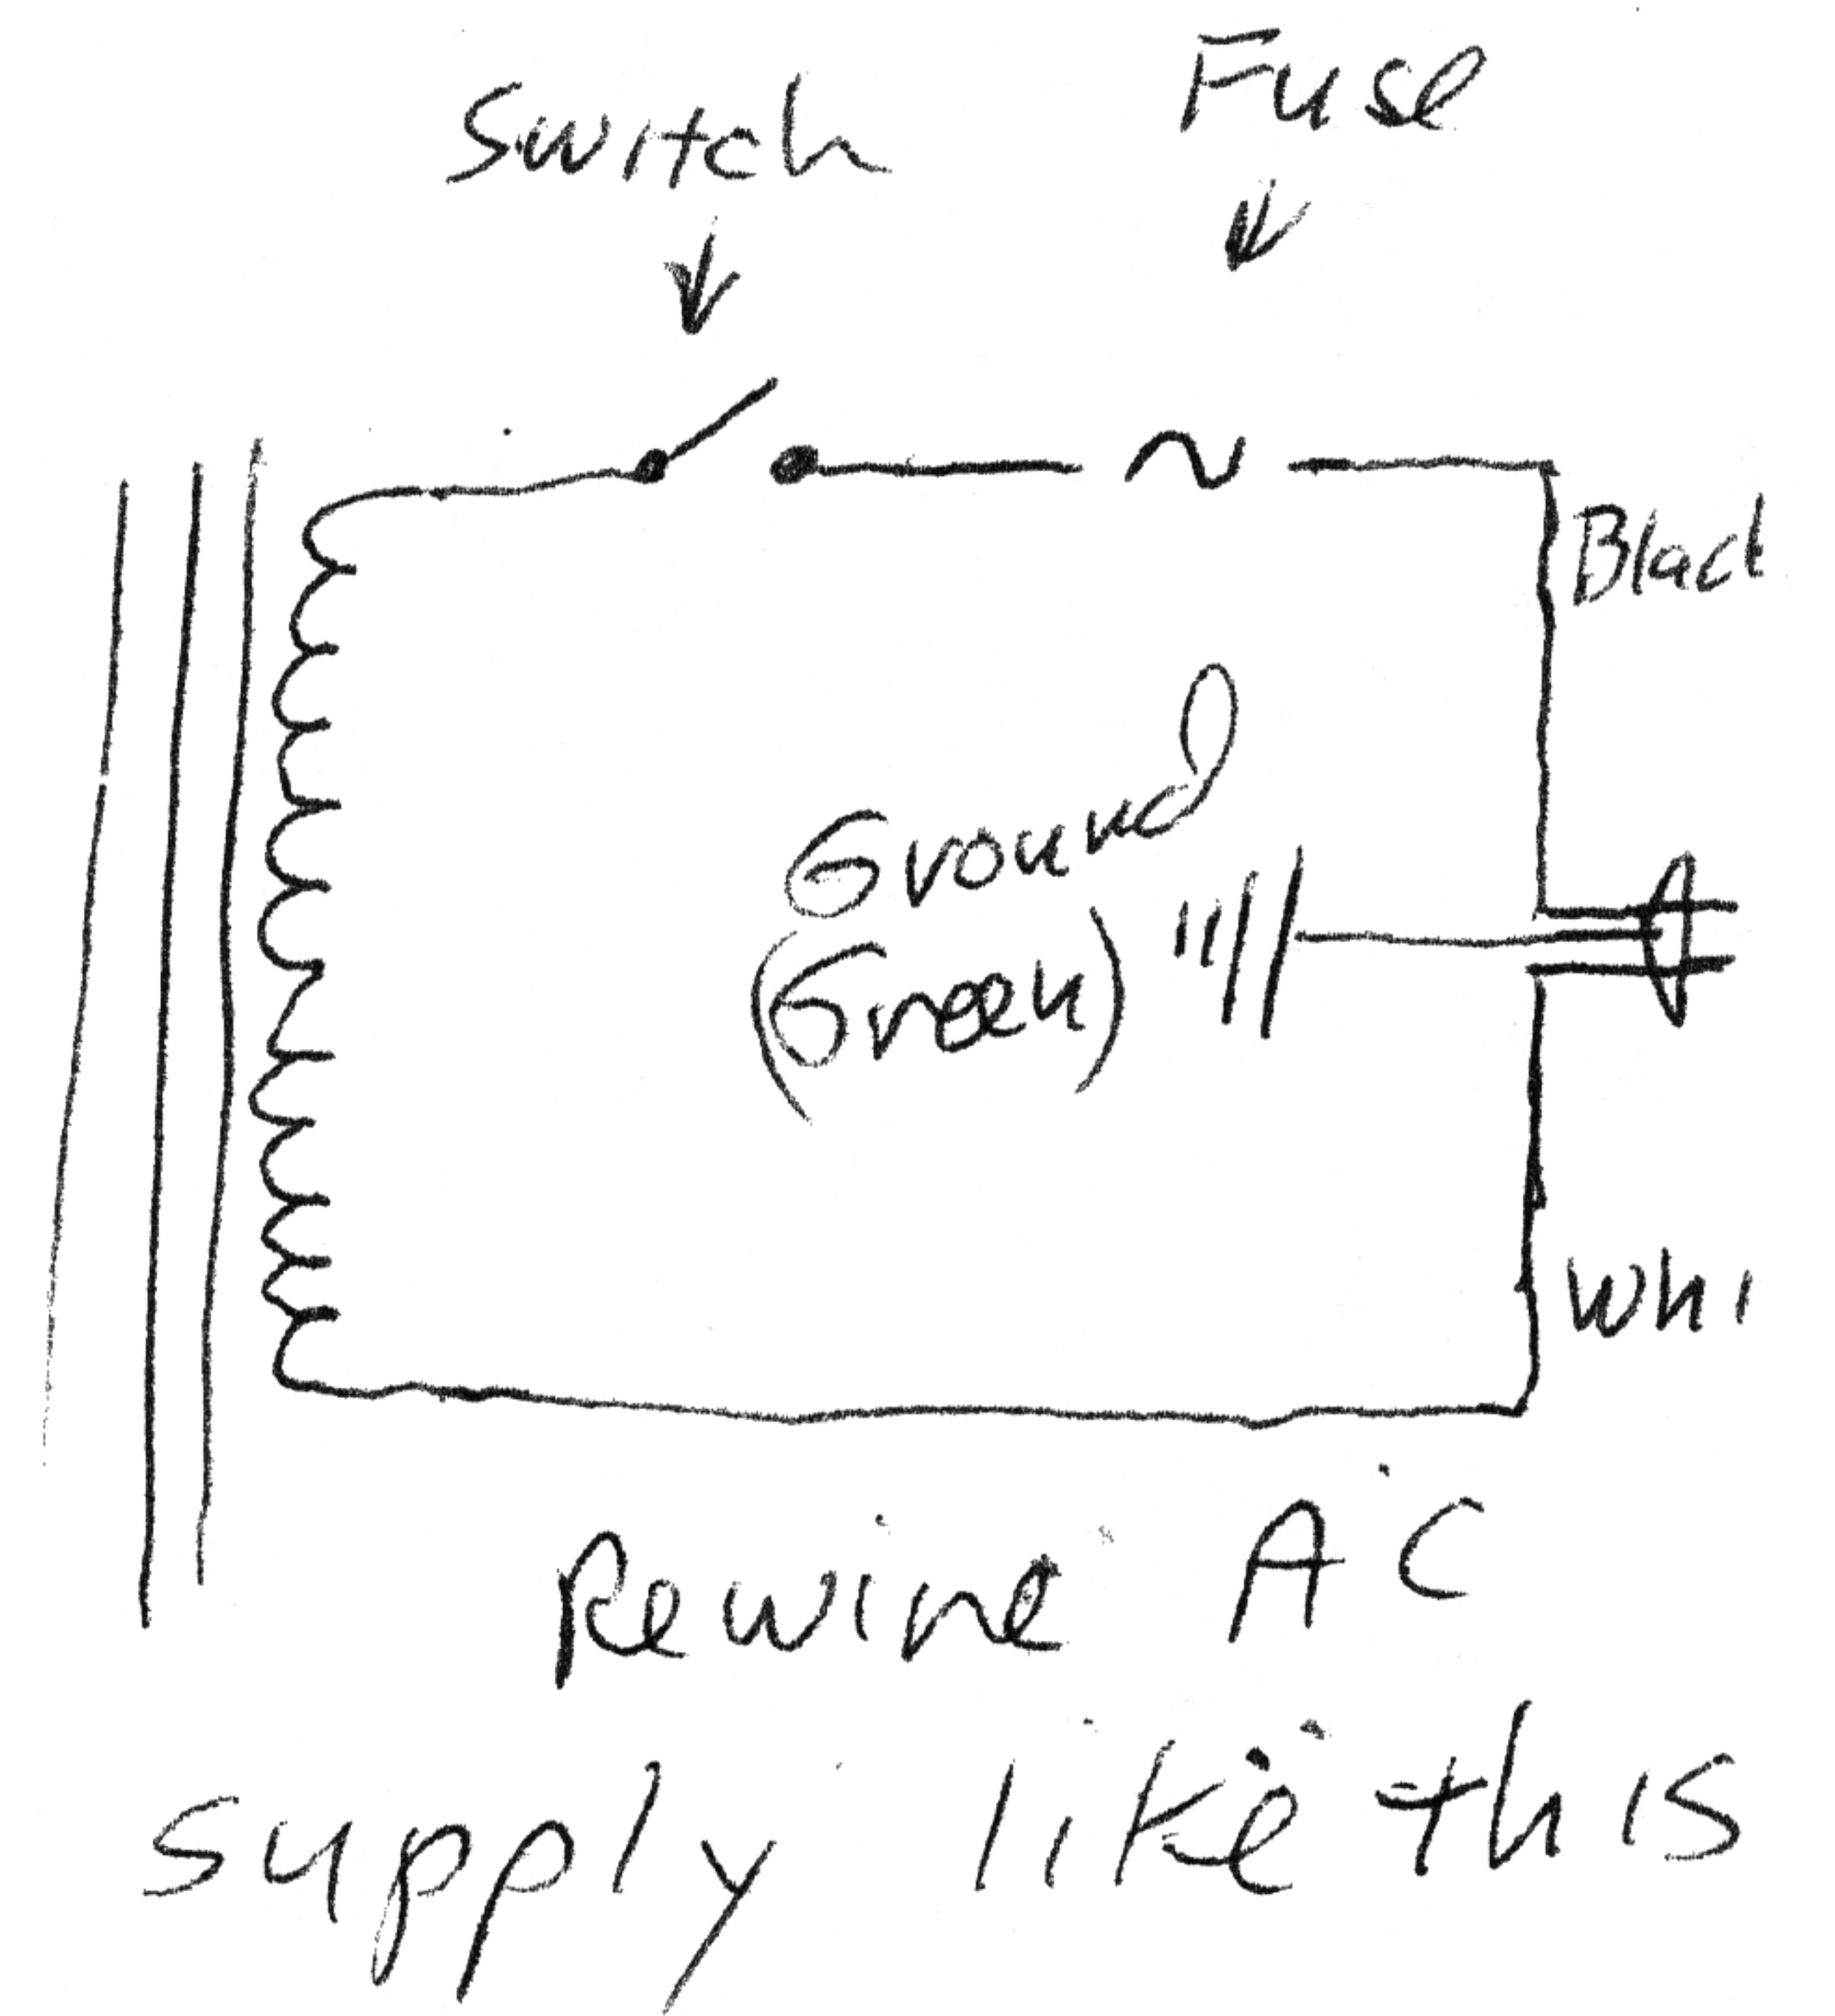 Switch
Fuse
Black
Ground
(Green)
Whi
Rewire AC
supply like this